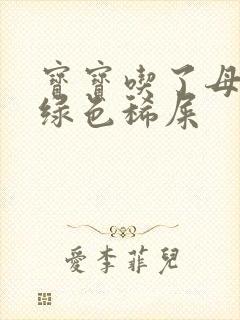 寶寶喫了母
綠色稀屎
愛李菲兒